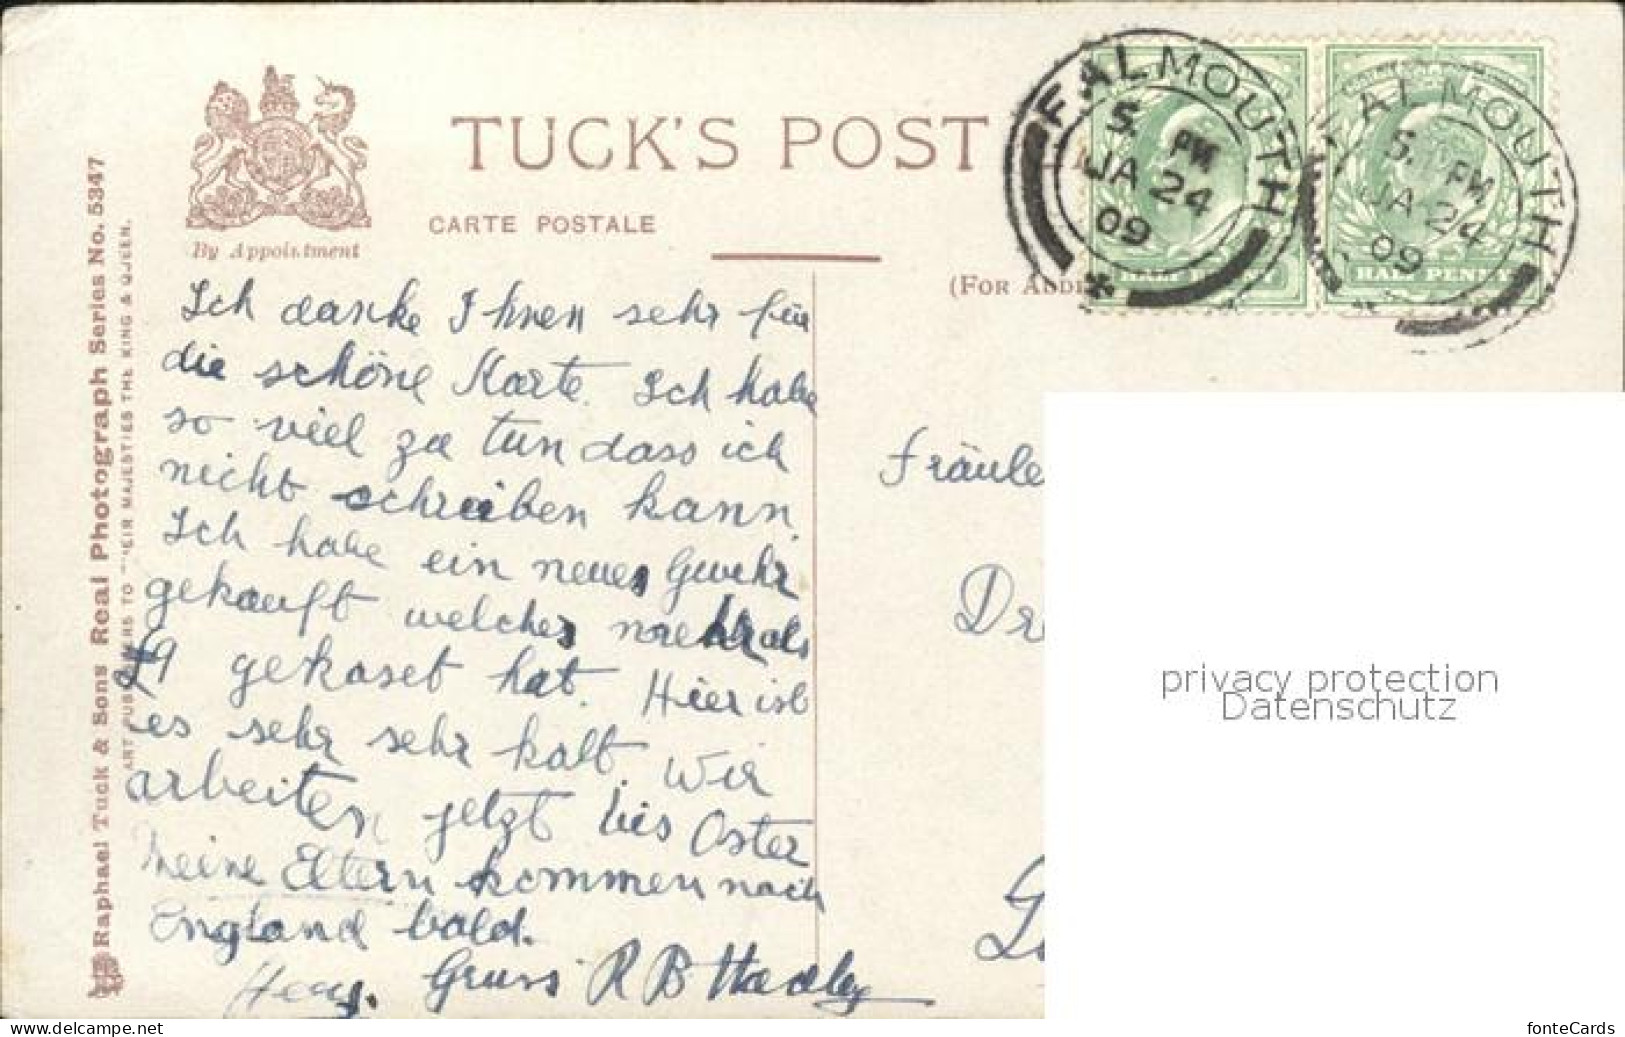 TUCK'S POST
CARTE POSTALE
By Appointment
(For Add
Raphael Tuck & Sons Real Photograph Series No. 5347
ART PUBLISHERS TO THEIR MAJESTIES THE KING & QUEEN.
FALMOUTH
5. PM
JA 24
09
FALMOUTH
5. PM
JA 24
09
HALF PENNY
HALF PENNY
Ich danke Ihnen sehr für
die schöne Karte. Ich habe
so viel zu tun dass ich
nicht schreiben kann.
Ich habe ein neues Gewehr
gekauft welches mehr als
£9 gekostet hat. Hier ist
es sehr sehr kalt. Wir
arbeiten jetzt bis Oster
Meine Eltern kommen nach
England bald.
Gruss R B Hadley
Fräule
Dre
privacy protection
Datenschutz
fonteCards